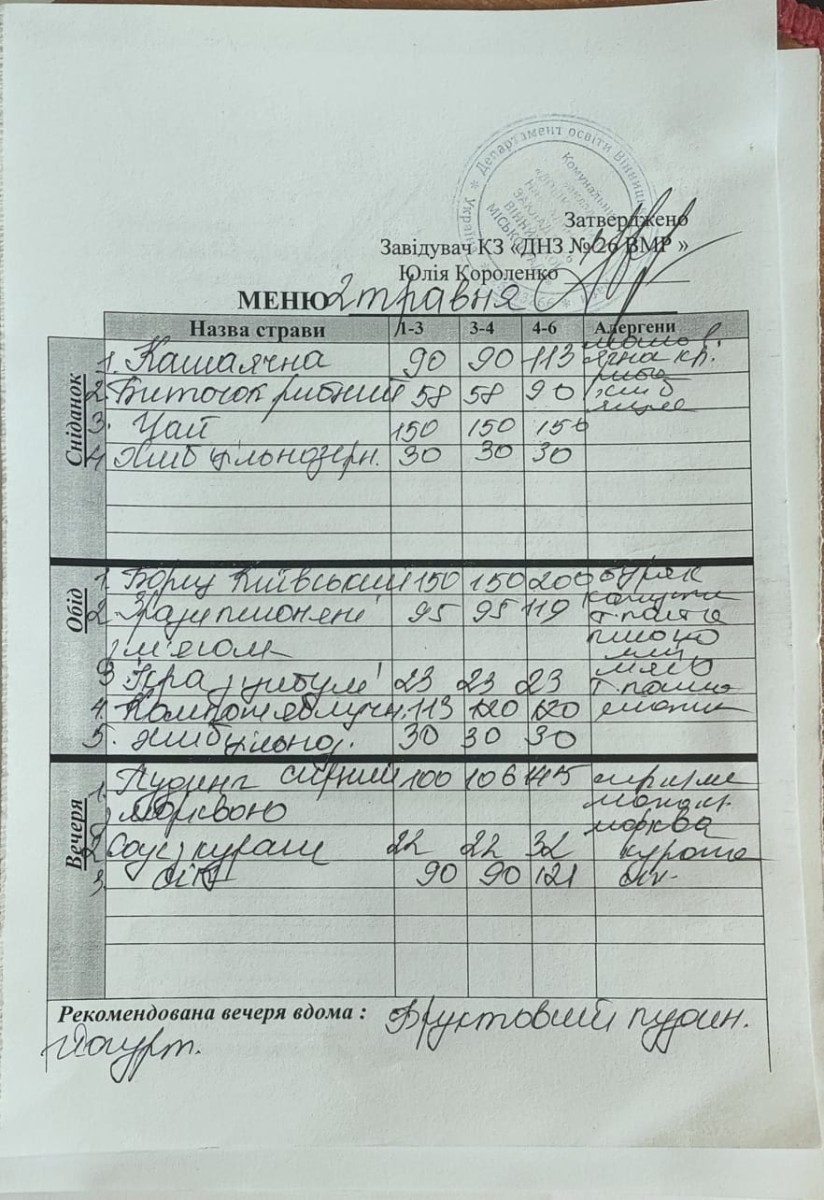 Департамент освіти Вінниц
Затверджено
Завідувач КЗ «ДНЗ № 26 ВМР »
Юлія Короленко
МЕНЮ 2 травня
Назва страви 1-3 3-4 4-6 Алергени
Сніданок
1. Каша ячна 90 90 113 ячна кр.
2. Биточок рибний 58 58 90 риба хліб
3. Чай 150 150 150
4. Хліб цільнозерн. 30 30 30
Обід
1. Борщ Київський 150 150 200 буряк
2. Зрази пшоняні 95 95 119 капуста томат
з м'ясом пшоно
3 Ікра з цибулі 23 23 23 м'ясо
4. Компот яблучн. 113 120 120
5. Хліб цільноз. 30 30 30
Вечеря
1. Пудинг сирний 100 106 145 сир
з морквою морква
2 Соус з кураги 22 22 32 курага
3. Сік 90 90 121 сік
Рекомендована вечеря вдома : Фруктовий пудин.
йогурт.